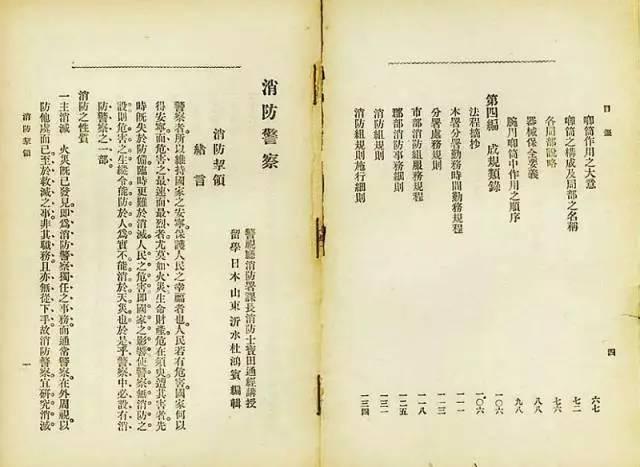 目錄 四
喞筒作用之大意 六七
喞筒之構成及局部之名稱 七二
各局部說略 七六
器械保全要義 八八
腕用喞筒中作用之順序 九八
第四編 成規類錄 一〇六
法程摘抄 一〇六
本署分署勤務時間勤務規程 一一一
分署處務規則 一一三
市部消防組服務規程 一一八
郡部消防事務細則 一二五
消防組規則 一三一
消防組規則施行細則 一三四
消防警察
警視廳消防署課長消防士寶田通經講授
留學日本山東沂水杜鴻賓編輯
消防挈領
緒言
警察者所以維持國家之安寧保護人民之幸福者也人民若有危害國家何以
得安寧而危害之最速而最烈者尤莫如火災生命財產危在須臾遭其害者先
時既失於防備臨時更難於消滅人民之危害即國家之影響使警察無消防之
設則危害之生縱令能防於人爲實不能消於天災也於是乎警察中必設有消
防警察之一部
消防之性質
一主消滅 火災既已發見即爲消防警察獨任之事務而通常警察在外周視以
防他虞而已至於救滅之事非其職務且亦無從下手故消防警察宜研究消滅
消防挈領 一